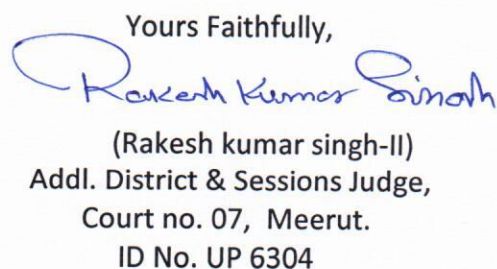 Yours Faithfully,
Rakesh Kumar Singh
(Rakesh kumar singh-II)
Addl. District & Sessions Judge,
Court no. 07, Meerut.
ID No. UP 6304